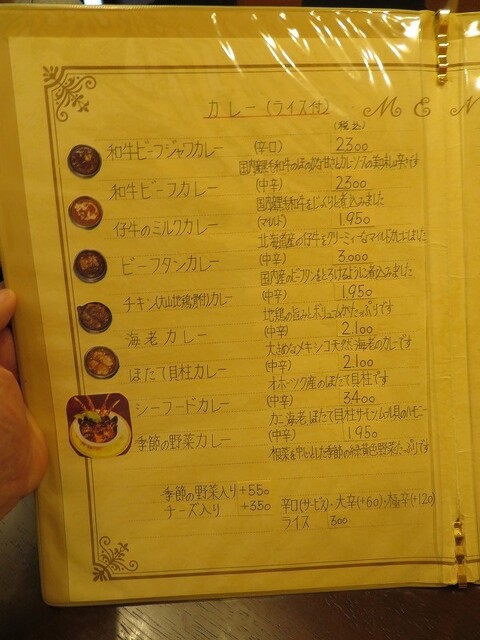 カレー(ライス付)
MEN
(税込)
和牛ビーフジャワカレー (辛口) 2300
国内産黒毛和牛のほのかな甘さとカレーソースの美味しい辛さです
和牛ビーフカレー (中辛) 2300
国内産黒毛和牛をじっくりと煮込みました
仔牛のミルクカレー (マイルド) 1.950
北海道産の仔牛をクリーミィーなマイルドカレーにしました
ビーフタンカレー (中辛) 3.000
国内産のビーフタンをとろけるように煮込みました
チキン(大山地鶏骨付)カレー (中辛) 1.950
地鶏の旨みとボリュームがたっぷりです
海老カレー (中辛) 2.100
大きめなメキシコ天然海老のカレーです
ほたて貝柱カレー (中辛) 2.100
オホーツク産のほたて貝です
シーフードカレー (中辛) 3400
カニ、海老、ほたて貝柱、サーモン、ムール貝のハーモニー
季節の野菜カレー (中辛) 1.950
根菜を中心とした季節の緑黄色野菜たっぷりです
季節の野菜入り +550
チーズ入り +350
辛口(サービス)・大辛(+60)・極辛(+120)
ライス 300